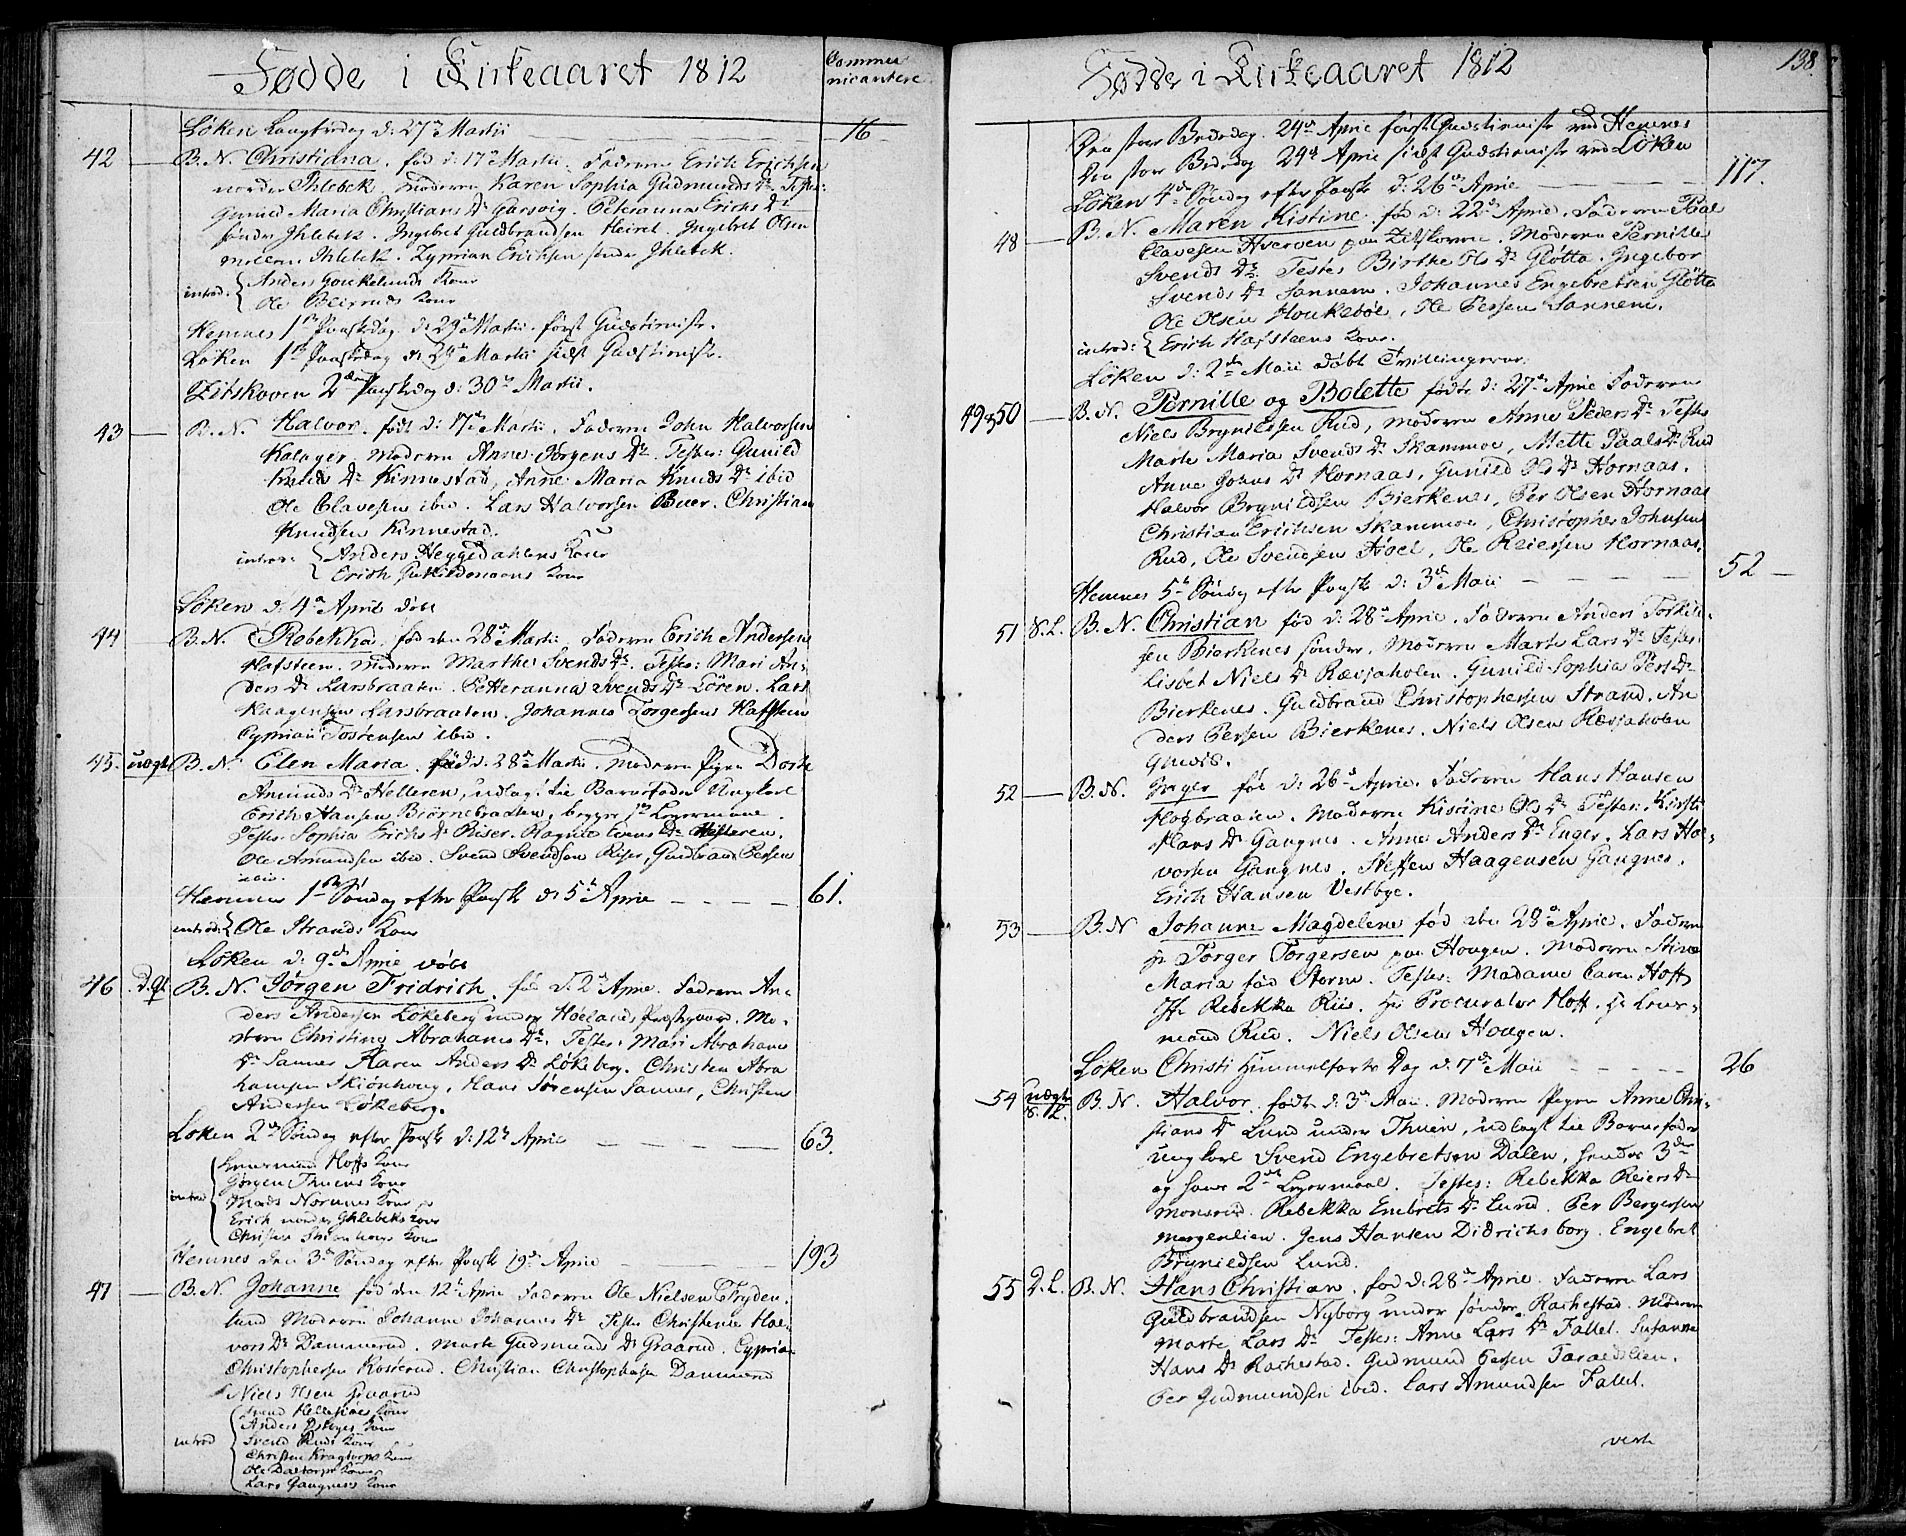 Fødde i Kirkeaaret 1812
Commu
nicantere
Løken Langfredag d: 27de Martii 16
42 B. N. Christiana. fød d: 17de Martii. Faderen Erich Erichsen
nordre Ihlebek, Moderen Karen Sophia Gudmunds Dr Testes:
Gunild Maria Christians Dr Garsvig. Peteranna Erichs Dr
søndre Ihlebek. Ingebret Guldbrandsen Heiret. Ingebret Olsen
mellem Ihlebek. Zyprian Erichsen søndre Ihlebek.
introd: Anders Gonkelunds Kone
Ole Beireruds Kone
Hemnes 1ste Paaskedag d: 29de Martii. først Gudstieniste.
Løken 1ste Paaskedag d: 29de Martii sidst Gudstieniste.
Zitskoven 2den Paaskedag d: 30te Martii.
43 B. N. Halvor. født d: 17de Martii. Faderen John Halvorsen
Kolager. Moderen Anne Jørgens Dr. Testes: Gunild
Knuds Dr Kinnestad, Anne Maria Knuds Dr ibid
Ole Olavesen ibid. Lars Halvorsen Buer. Christian
Knudsen Kinnestad.
introd: Anders Heggedahlens Kone
Erich Kone
Løken d: 4de April døbt
44 B. N. Rebekka. fød den 28de Martii. Faderen Erich Andersen
Hafsteen. Moderen Marthe Svends Dr. Testes: Mari An-
ders Dr Larsbraaten. Petteranna Svends Dr Løren. Lars
Haagensen Larsbraaten. Johannes Torgersen Hafsteen
Cyprian Torersen ibid.
45. uægte B. N. Elen Maria. fød d: 28de Martii. Moderen Pigen Dorte
Amunds Dr Helleren, udlagt til Barnefader Ungkarl
Erich Hansen Biørnebraaten, begges 1ste Leyermaal.
Testes Sophia Erichs Dr Riser. Ragnild Evens Dr Helleren.
Ole Amundsen ibid. Svend Svendsen Riser, Guldbrand Persen
ibid.
Hemnes 1ste Søndag efter Paaske d: 5te April 61.
introd: Ole Strands Kone
Løken d: 9de April døbt
46 B. N. Jørgen Fridrich. fød d: 2de April. Faderen An-
ders Andersen Løkeberg under Hølands Præstegaard. Mo-
deren Christine Abrahams Dr. Testes: Mari Abrahams
Dr Sanner Karen Anders Dr Løkeberg. Christen Abra
hamsen Skiønhoug, Hans Sørensen Sanner, Christen
Andersen Løkeberg.
Løken 2den Søndag efter Paaske d: 12te April 63.
introd Hoffs Kone
Jørgen Thuens Kone
Mads Nornnes Kone
Erich nordre Ihlebeks Kone
Christen Kone
Hemnes den 3die Søndag efter Paaske 19de April 193
47 B. N. Johanne fød den 12te April Faderen Ole Nielsen Fryden-
lund Moderen Johanne Johannes Dr Testes Christense Hal-
vors Dr Dammerud. Marte Gudmunds Dr Graarud. Cyprian
Christophersen Kosserud. Christian Christophersen Dammerud
Niels Olsen Graarud
introd Svend Hellesiøes Kone
Anders Kone
Svend Ruds Kone
Christen Kragtorps Kone
Ole Daltorps Kone
Lars Gangnes's Kone
Fødde i Kirkeaaret 1812 138
Den store Bededag. 24de April først Gudstieniste ved Hemnes
Den store Bededag 24de April sidst Gudstieniste ved Løken
Løken 4de Søndag efter Paaske d: 26de April 117.
48 B. N. Maren Kistine. fød d: 22de April. Faderen Paal
Olavesen Hverven paa Zitskoven. Moderen Pernille
Svends Dr. Testes Birthe Ols Dr Gløtta. Ingebor
Svends Dr Sannem. Johannes Engebretsen Gløtta
Ole Olsen Honkebøl, Ole Persen Sannem.
introd: Erich Hafsteens Kone.
Løken d: 2den Maii døbt Tvillingerne.
49&50 B. N. Pernille og Bolette fødde d: 27de April Faderen
Niels Brynildsen Rud, Moderen Anne Peders Dr. Testes
Marte Maria Svends Dr Skammoe, Mette Paals Dr Rud
Anne Johns Dr Hornaas, Gunild Ols Dr Hornaas.
Halvor Brynildsen Bierkenes, Per Olsen Hornaas
Christian Erichsen Skammoe, Christopher Johnsen
Rud, Ole Svendsen Hoel, Ole Reiersen Hornaas.
Hemnes 5te Søndag efter Paaske d: 3die Maii 52
51 S. L. B. N. Christian fød d: 28de April. Faderen Anders Torkild-
sen Bierkenes søndre, Moderen Marte Lars Dr Testes:
Lisbet Niels Dr Rævjaholen. Gunild Sophia Pers Dr
Bierkenes. Guldbrand Christophersen Strand. An
ders Persen Bierkenes. Niels Olsen Rævjaholen
52 B. N. Inger fød d: 26de April. Faderen Hans Hansen
Hogbraaten. Moderen Kistine Ols Dr Testes: Kirsti
Hans Dr Gangnes. Anne Anders Dr Enger. Lars Hal-
vorsen Gangnes. Steffen Haagensen Gangnes.
Erich Hansen Vestbye.
53 B. N. Johanne Magdelene fød den 28de April. Faderen
Hr Torger Torgersen paa Hougen. Moderen Stine
Maria fød Storm. Testes: Madame Caren Hoff
Jfr Rebekka Riis. Hr Procurator Hoff. Hr Leuer-
mand Rud. Niels Olsen Hougen.
Løken Christi Himmelfarts Dag d: 7de Maii 26
54 uægte S. L. B. N. Halvor. født d: 3die Maii. Moderen Pigen Anne Chri-
stians Dr Lund under Thuen, udlagt til Barnefader
Ungkarl Svend Engebretsen Dalen, hendes 3die
og hans 2det Leyermaal. Testes: Rebekka Reiers Dr
Monsrud. Rebekka Enebrets Dr Lund. Per Bergersen
Morgenlien. Jens Hansen Didrichsborg. Engebret
Brynildsen Lund.
55 D. L. B. N. Hans Christian. fød d: 28de April. Faderen Lars
Guldbrandsen Nyborg under søndre Rachestad. Moderen
Marte Lars Dr Testes: Anne Lars Dr Fallet. Susanne
Hans Dr Rachestad. Gudmund Persen Taraldslien.
Per Gudmundsen ibid. Lars Amundsen Fallet.
verte